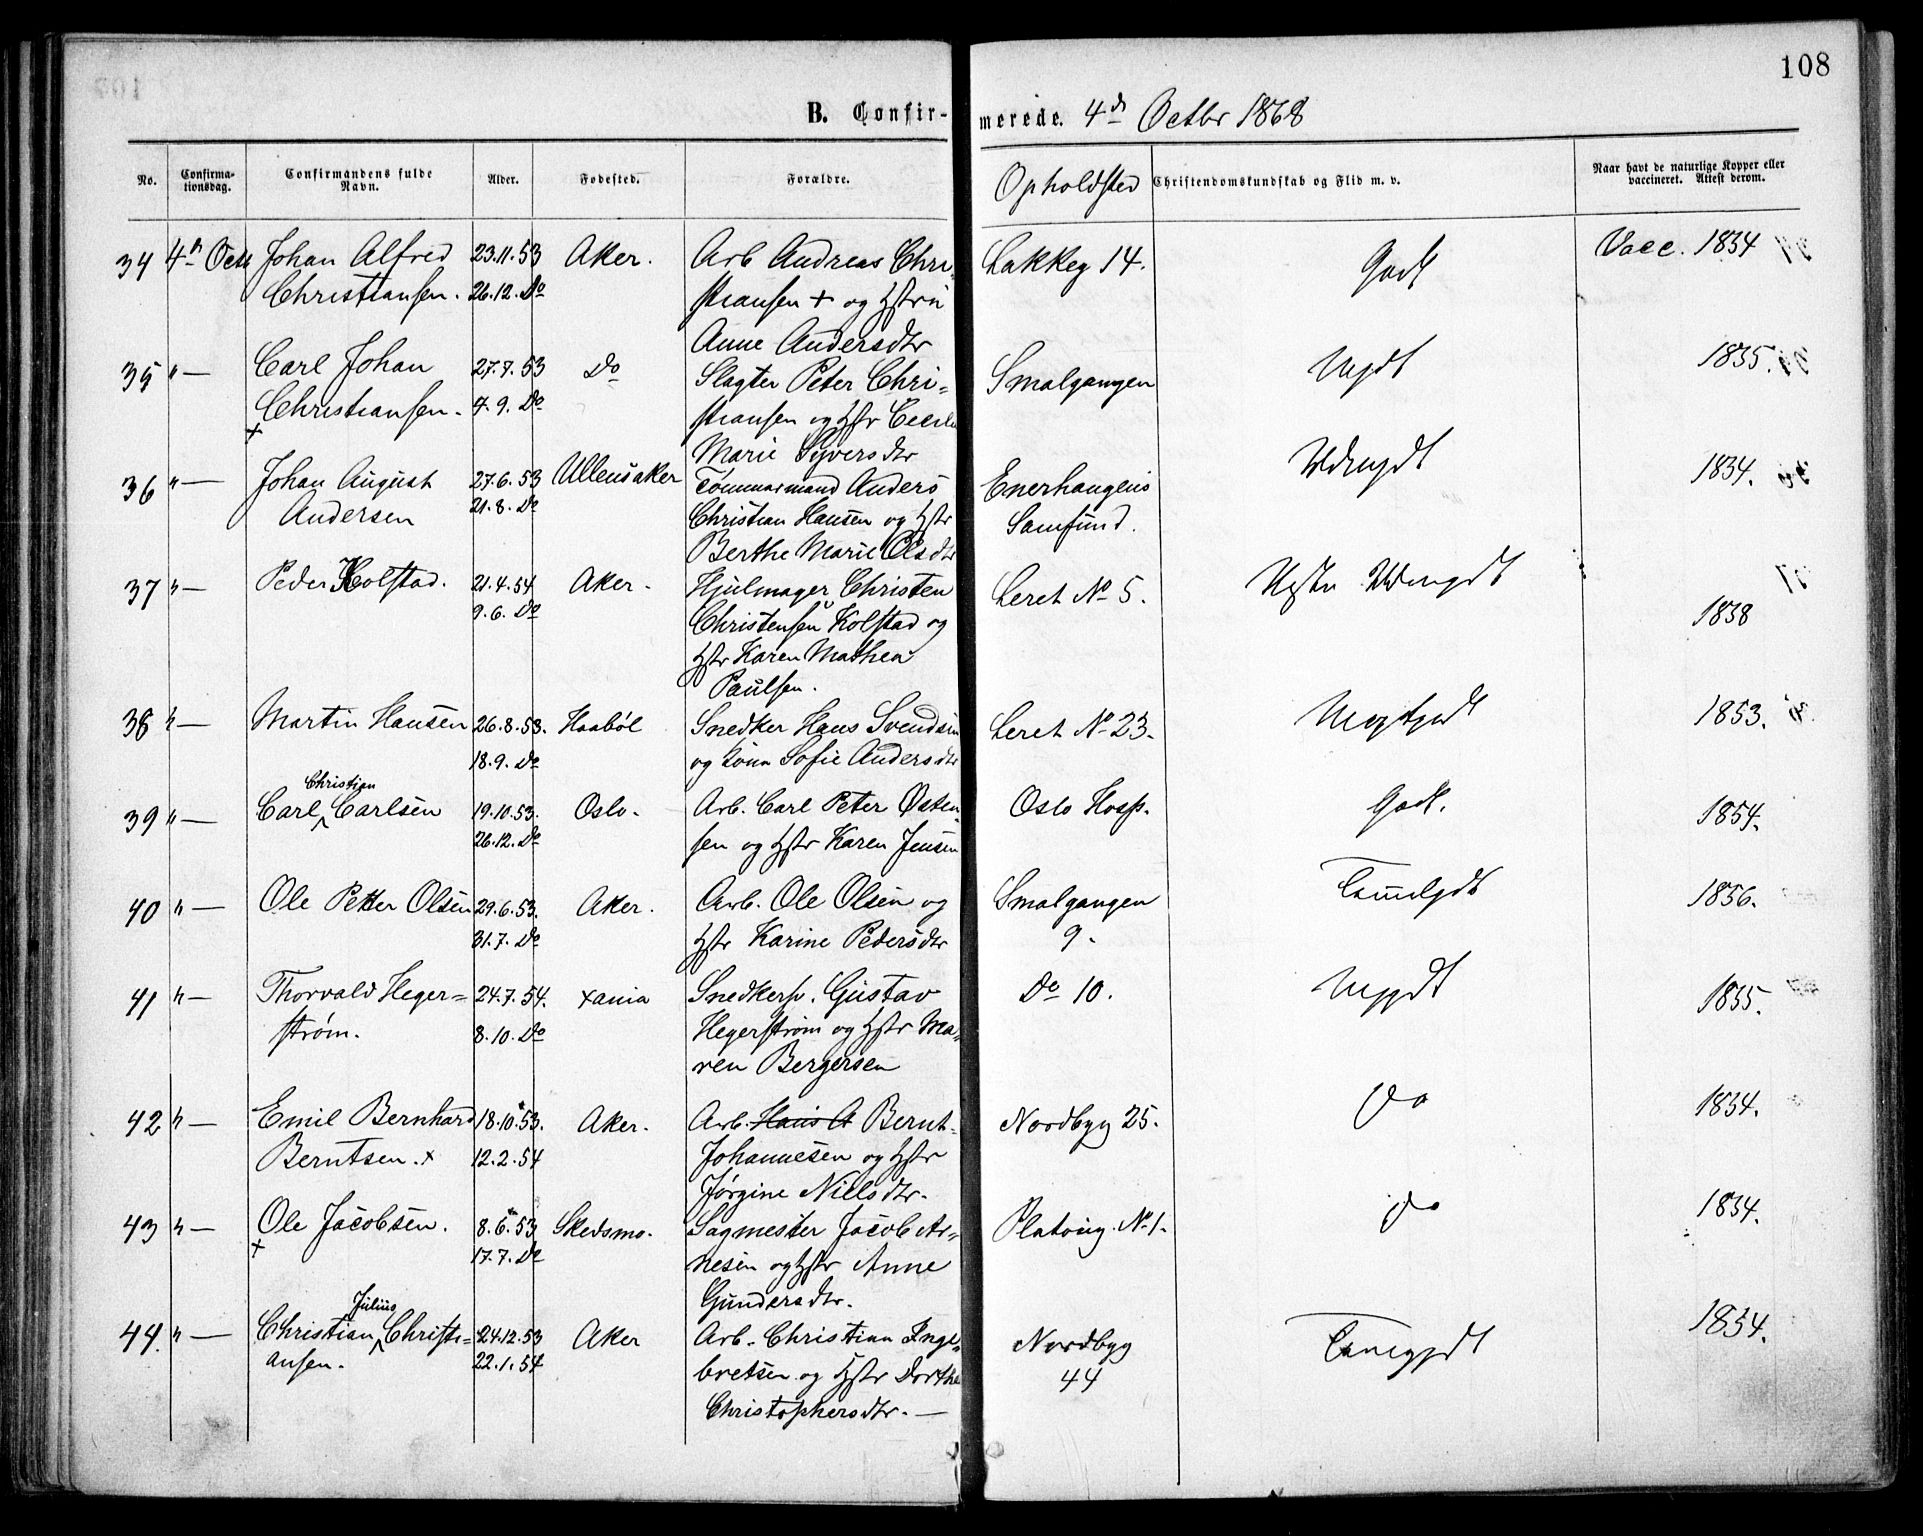 108
B. Confirmerede. 4d Octbr 1868
No.
Confirmationsdag.
Confirmandens fulde Navn.
Alder.
Fødested.
Forældre.
Opholdsted
Christendomskundskab og Flid m. v.
Naar havt de naturlige Kopper eller vaccineret. Attest derom.
34 4d Octr Johan Alfred 23.11.53 Aker. Arb Andreas Chri- Lakkeg 14. Godt Vacc. 1854
Christiansen. 26.12. Do stiansen + og Hstru
Anne Andersdtr
35 "— Carl Johan 27.7.53 Do Slagter Peter Chri= Smalgangen Mgdt 1855.
Christiansen. 4.9. Do stiansen og Hstr Cecilie
+ Marie Syversdtr
36 "— Johan August 27.6.53 Ullensaker Tømmermand Anders Enerhaugens 1854.
Andersen 21.8. Do Christian Hansen og Hstr Samfund.
Berthe Marie Olsdtr
37 "— Peder Kolstad. 21.4.54 Aker. Hjulmager Christen Leret No 5.
9.6. Do Christensen Kolstad og 1858
Hstr Karen Mathea
Paulsen.
38 "— Martin Hansen 26.8.53. Haabøl Snedker Hans Svendsen Leret No 23. 1853.
18.9. Do og Kona Sofie Andersdtr
39 "— Carl Christian Carlsen 19.10.53. Oslo. Arb. Carl Peter Østen- Oslo Hosp. Godt. 1854.
26.12. Do sen og Hstr Karen Jensen
40 "— Ole Petter Olsen 29.6.53. Aker. Arb. Ole Olsen og Smalgangen 1856.
31.7. Do Hstr Karine Pedersdtr 9.
41 "— Thorvald Heger= 24.7.54. Xania Snedkersv. Gustav Do 10. Mgdt 1855.
strøm. 8.10. Do Hegerstrøm og Hstr Ma=
ren Bergersen
42 "— Emil Bernhard 18.10.53. Aker. Arb. Hans A Bernt Nordbyg 25. Do 1854.
Berntsen. x 12.2.54 Johannesen og Hstr
Jørgine Nielsdtr.
43 "— Ole Jacobsen. 8.6.53 Skedsmo. Sagmester Jacob Ar= Platoug. No 1. Do 1854.
+ 17.7. Do nesen og Hstr Anne
Gundersdtr.
44. "— Christian Julius Christi= 24.12.53 Aker Arb. Christian Inge= Nordbyg 1854.
ansen. 22.1.54 bretsen og Hstr Dorthe 44
Christophersdtr. —